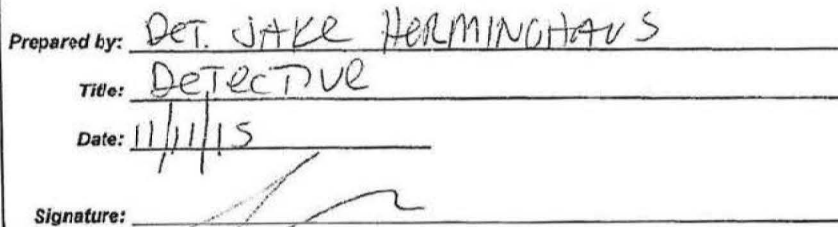 Prepared by: DeT. JAKe HeRMINGHAUS
Title: DeTecTIVe
Date: 11/11/15
Signature: